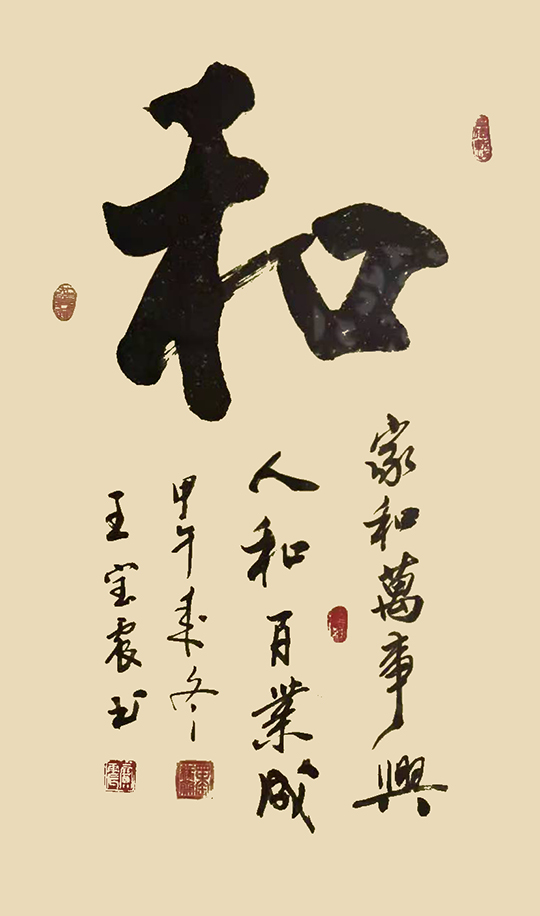 和
家和萬事興
人和百業成
甲午冬
王宝书